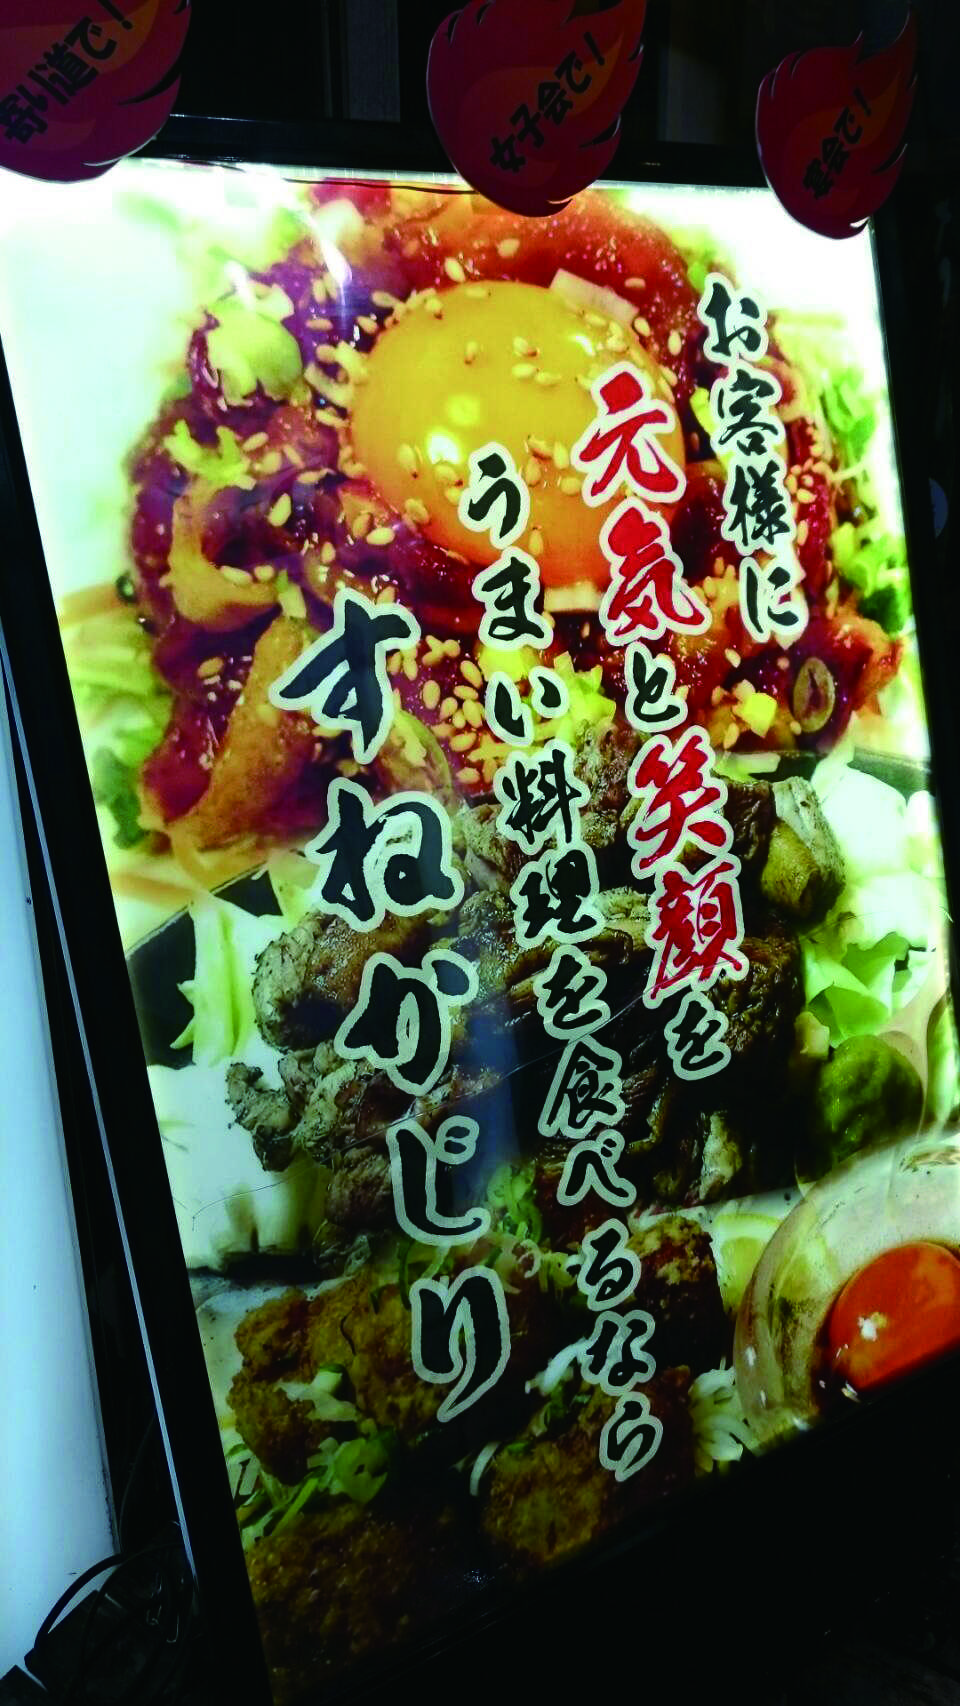 寄り道で！
女子会で！
宴会で！
お客様に
元気と笑顔を
うまい料理を食べるなら
すねかじり